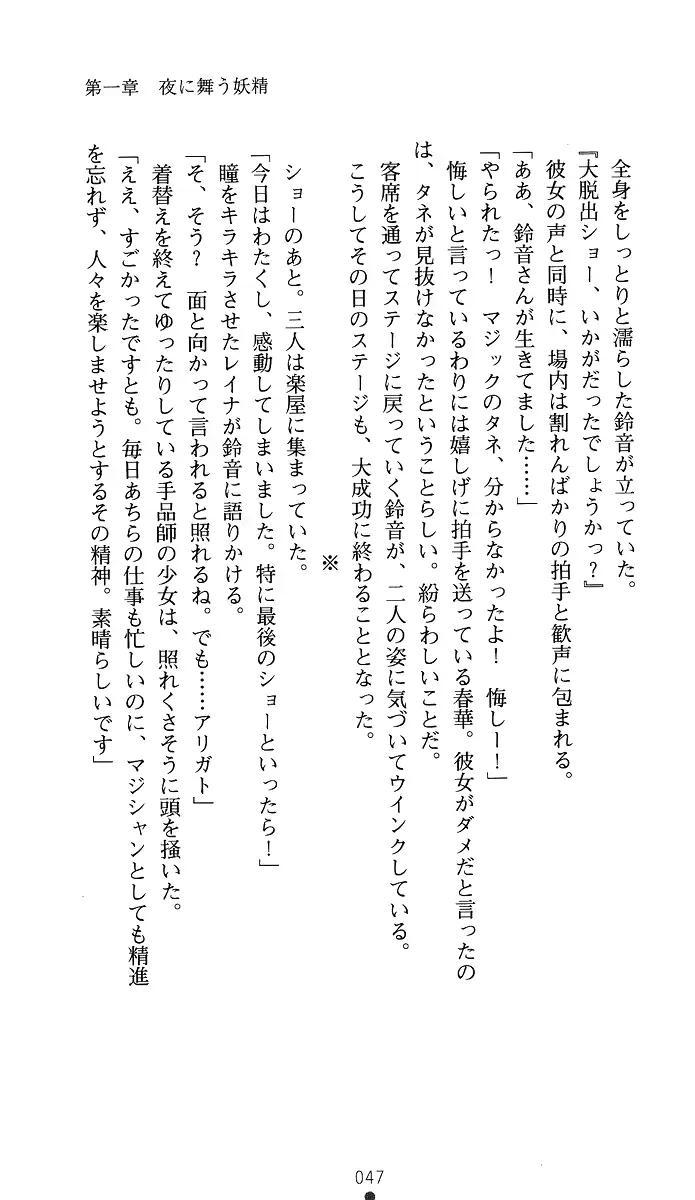 第一章　夜に舞う妖精
全身をしっとりと濡らした鈴音が立っていた。
『大脱出ショー、いかがだったでしょうかっ？』
彼女の声と同時に、場内は割れんばかりの拍手と歓声に包まれる。
「ああ、鈴音さんが生きてました……」
「やられたっ！　マジックのタネ、分からなかったよ！　悔しー！」
悔しいと言っているわりには嬉しげに拍手を送っている春華。彼女がダメだと言ったの
は、タネが見抜けなかったということらしい。紛らわしいことだ。
客席を通ってステージに戻っていく鈴音が、二人の姿に気づいてウインクしている。
こうしてその日のステージも、大成功に終わることとなった。
※
ショーのあと。三人は楽屋に集まっていた。
「今日はわたくし、感動してしまいました。特に最後のショーといったら！」
瞳をキラキラさせたレイナが鈴音に語りかける。
「そ、そう？　面と向かって言われると照れるね。でも……アリガト」
着替えを終えてゆったりしている手品師の少女は、照れくさそうに頭を掻いた。
「ええ、すごかったですとも。毎日あちらの仕事も忙しいのに、マジシャンとしても精進
を忘れず、人々を楽しませようとするその精神。素晴らしいです」
047